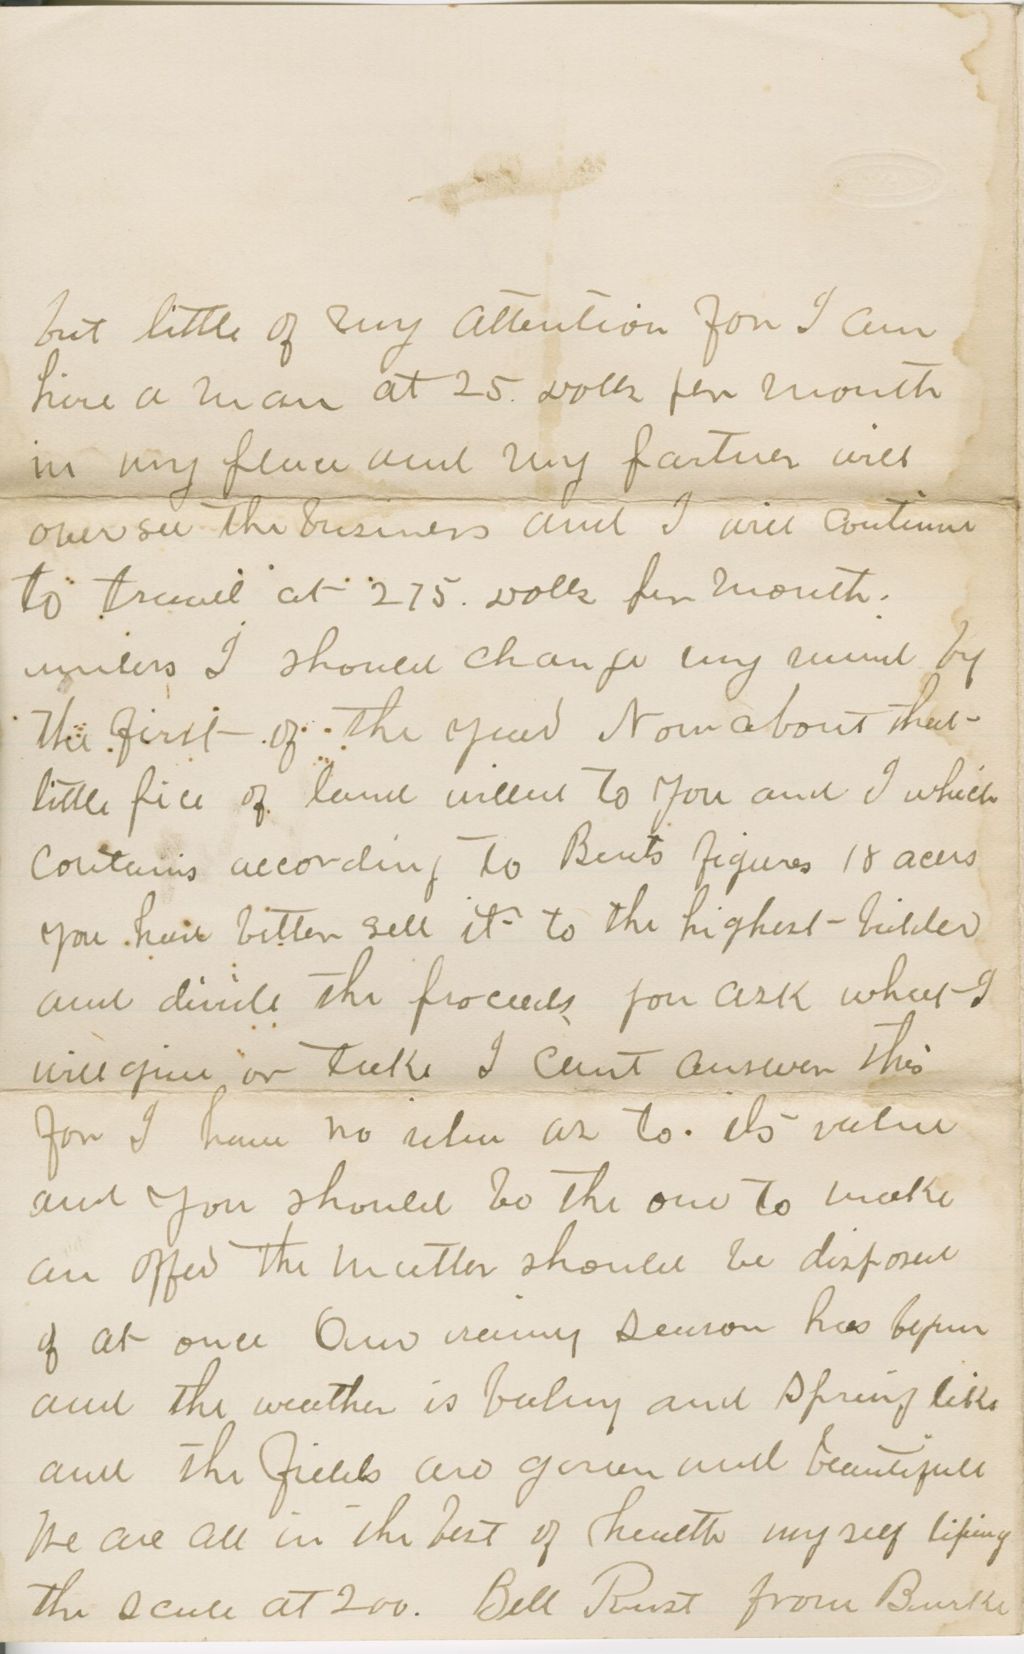 but little of my attention for I am
hire a man at 25. dolls per month
in my place and my partner will
over see the business and I will continue
to travel at 275. dolls per month.
unless I should change my mind by
the first of the year Now about that
little piece of land willed to you and I which
contains according to Berts figures 18 acers
you have better sell it to the highest bidder
and divide the proceeds you ask what I
will give or take I cant answer this
for I have no idea as to its value
and you should be the one to make
an offer the matter should be disposed
of at once Our rainy season has begun
and the weather is balmy and spring like
and the fields are green and beautifull
We are all in the best of health my self tiping
the scale at 200. Bell Rust from Burke